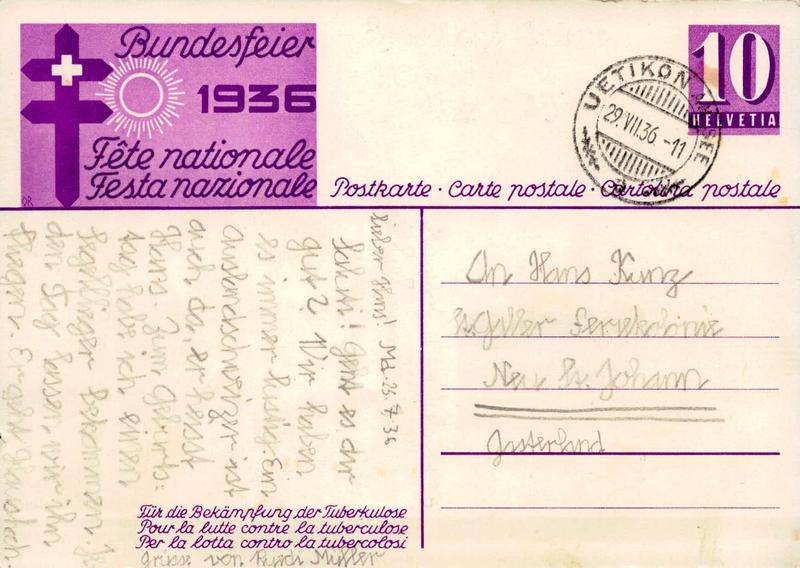 Bundesfeier
1936
Fête nationale
Festa nazionale
Postkarte · Carte postale · Cartolina postale
10
HELVETIA
UETIKON
29.VII.36.-11
lieber Hans! Md. 28.7.36
Sahti! Geht es dir
gut? Wir haben
es immer lustig. Ein
Auslandschweizer ist
auch da, er heisst
Hans. Zum Geburts-
tag habe ich einen
Segelflieger bekommen. Je
den Tag lassen wir ihn
fliegen. Er
Für die Bekämpfung der Tuberkulose
Pour la lutte contre la tuberculose
Per la lotta contro la tubercolosi
Grüsse von Ruedi Müller
An Hans Kunz
St. Galler Ferienkolonie
Neu St. Johann